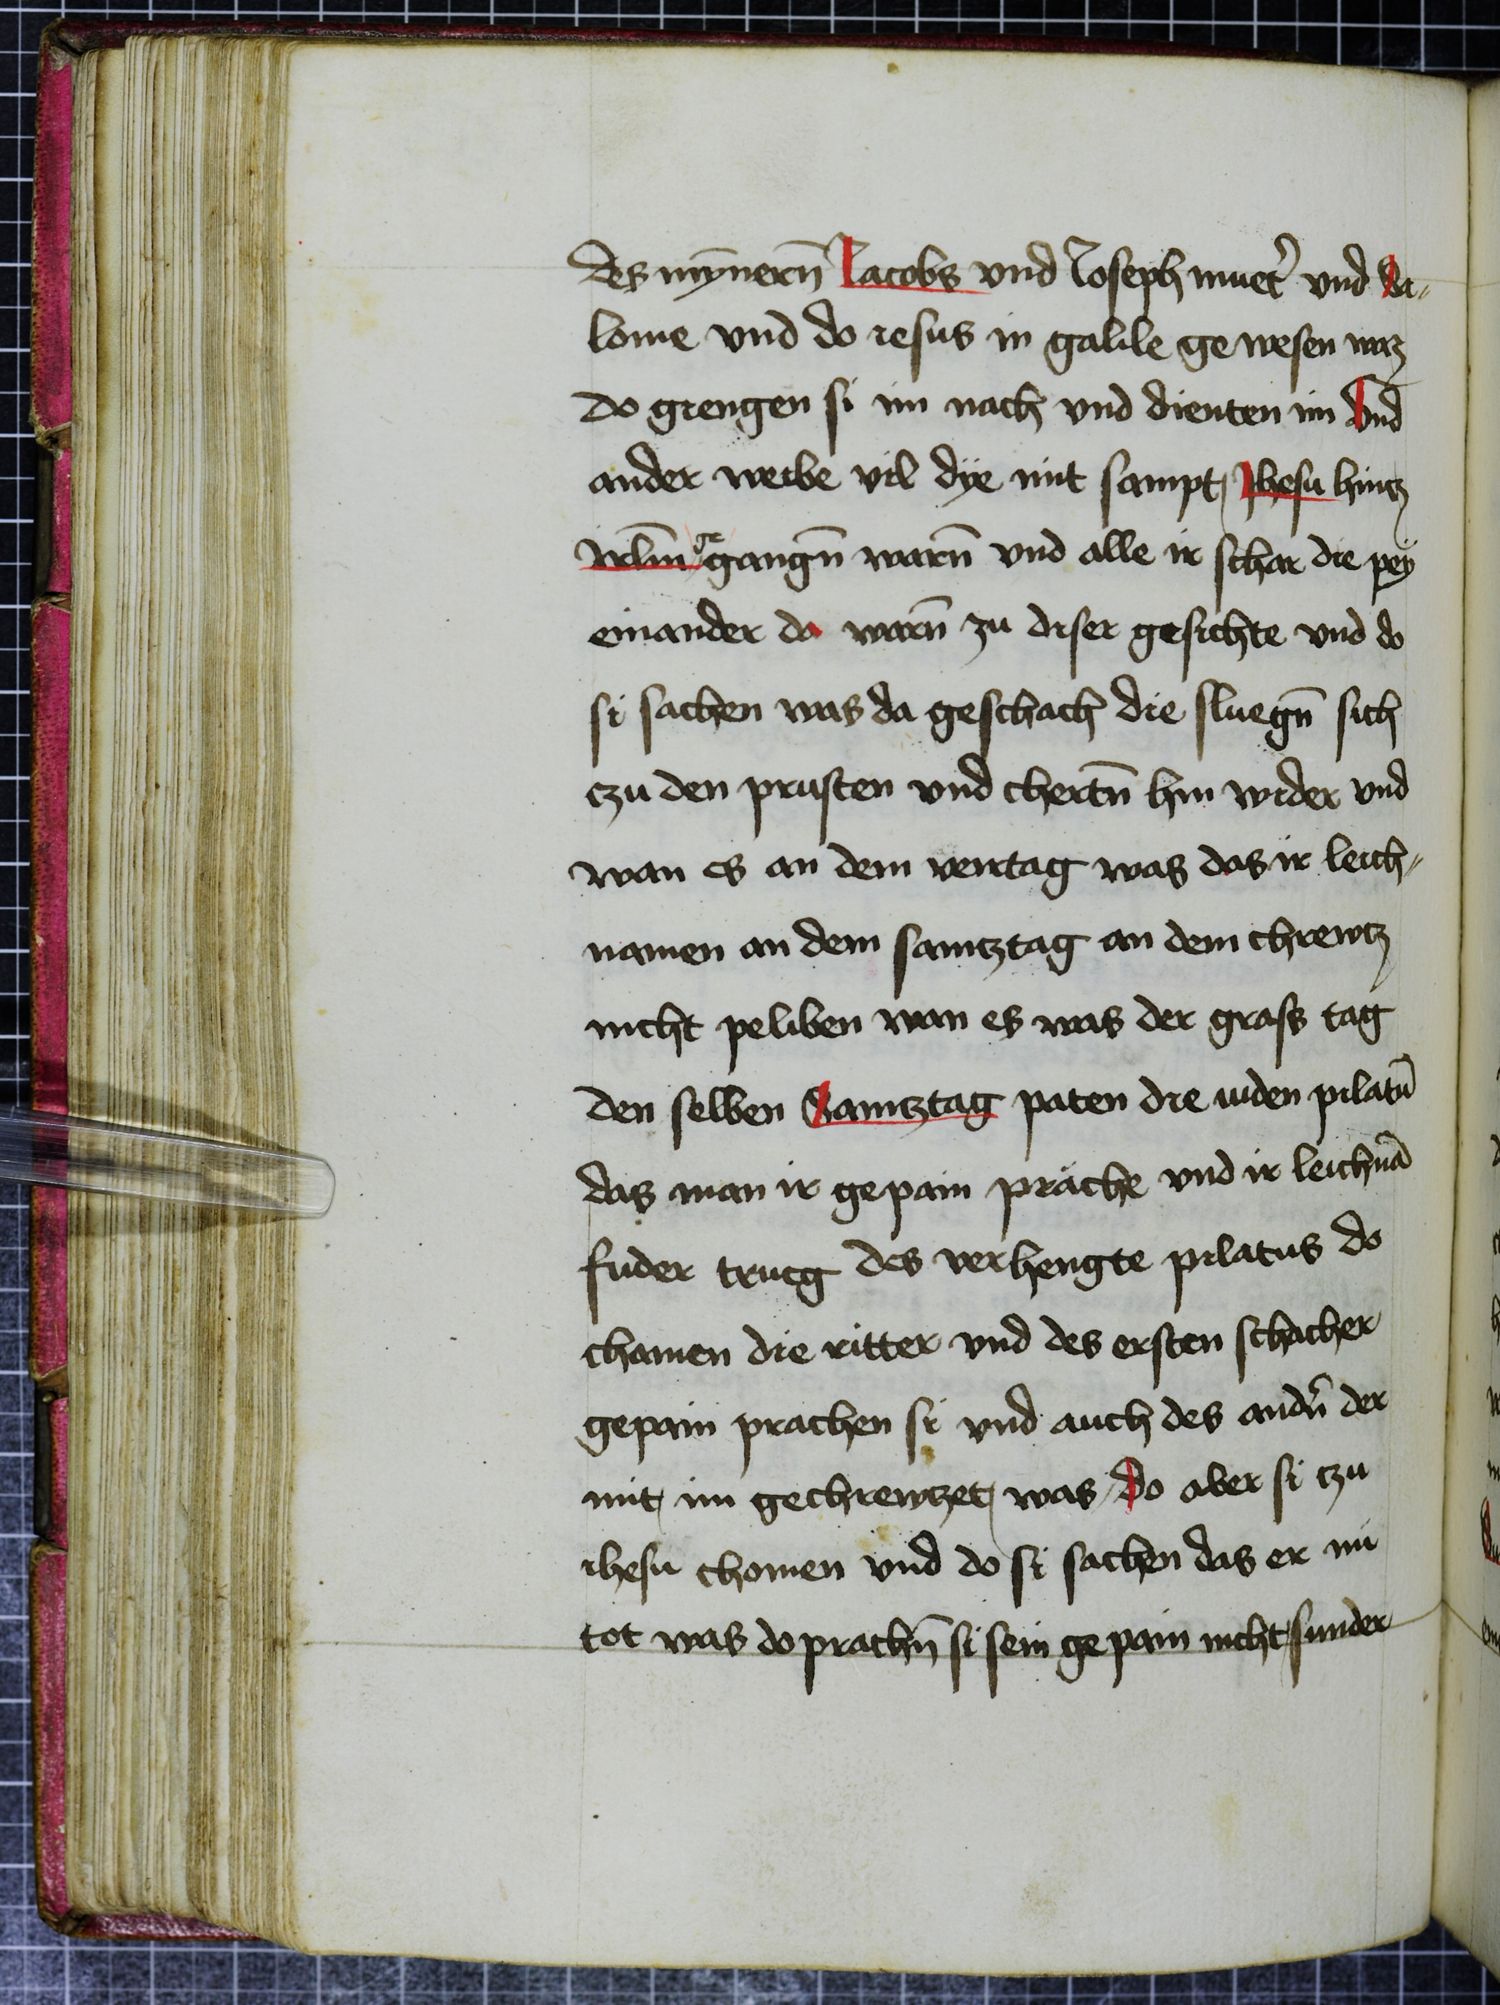 des myn̄ern̄ Jacobs vnd Joseph muet͛ vnd Sa-
lome vnd do iesus in galile gewesen waz
do giengen si im nach vnd dienten im Vnd
ander weibe vil dye mit sampt Jhesu hintz
irl̄m gegangn̄ warn̄ vnd alle ir schar die pey
einander do warn̄ zu diser gesichte vnd do
si sachen was da geschach die sluegn̄ sich
czu den prusten vnd chertn̄ hin wider vnd
wan es an dem veirtag was das ir leich-
namen an dem samcztag an dem chrewcz
nicht peliben wan es was der gross tag
den selben Samcztag paten die iuden pilatū
das man ir gepain präche vnd ir leichnā
fuder trueg des verhengte pilatus do
chamen die ritter vnd des ersten schacher
gepain prachen si vnd auch des andn̄ der
mit im gechrewczet was Do aber si czu
ihesu chomen vnd do si sachen das er nu
tot was do prachn̄ si sein gepain nicht sunder